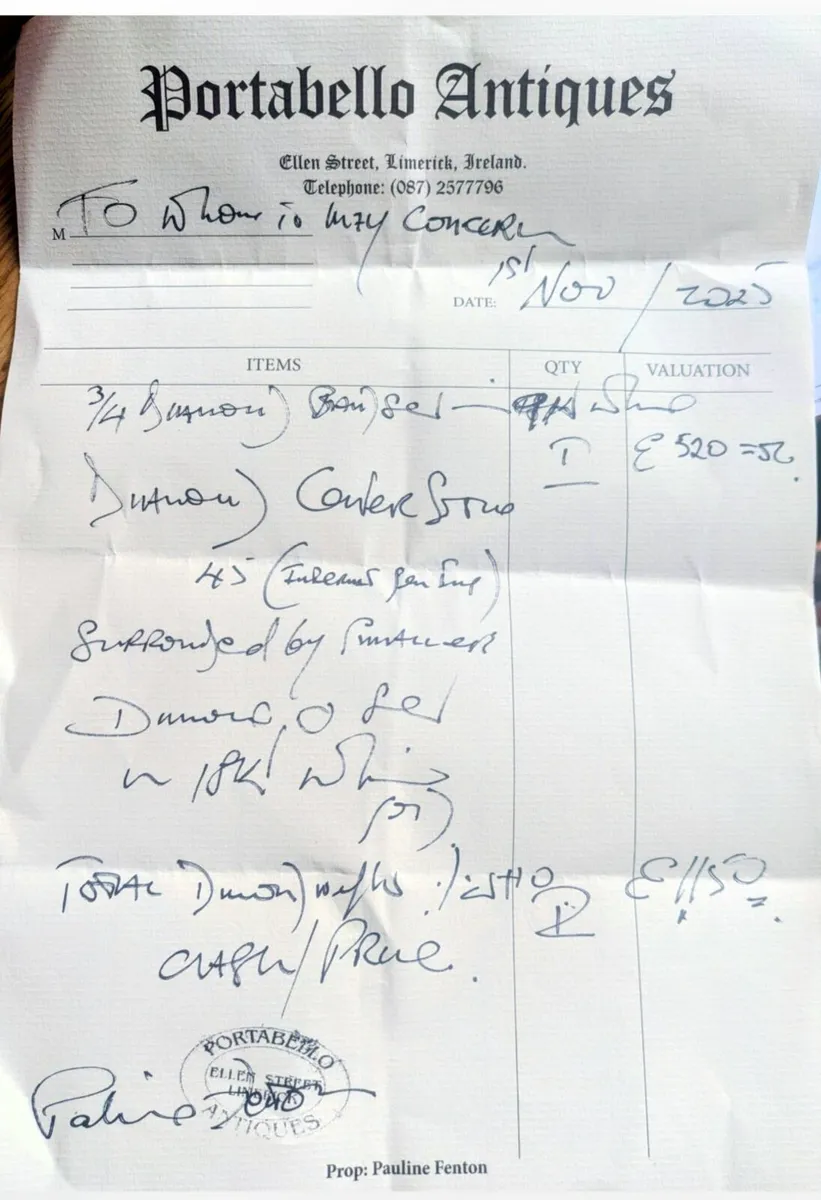 Portabello Antiques
Ellen Street, Limerick, Ireland.
Telephone: (087) 2577796
M To Whom
Concern
DATE: 1st Nov / 2025
ITEMS QTY VALUATION
3/4 Diamond Band Set
1 € 520
Diamond Center Stone
45
Surrounded by Smaller
Diamonds Set
in 18Kt White
Total Diamond
1 €1150
Cash/Price.
PORTABELLO
ELLEN STREET
LIMERICK
ANTIQUES
Prop: Pauline Fenton